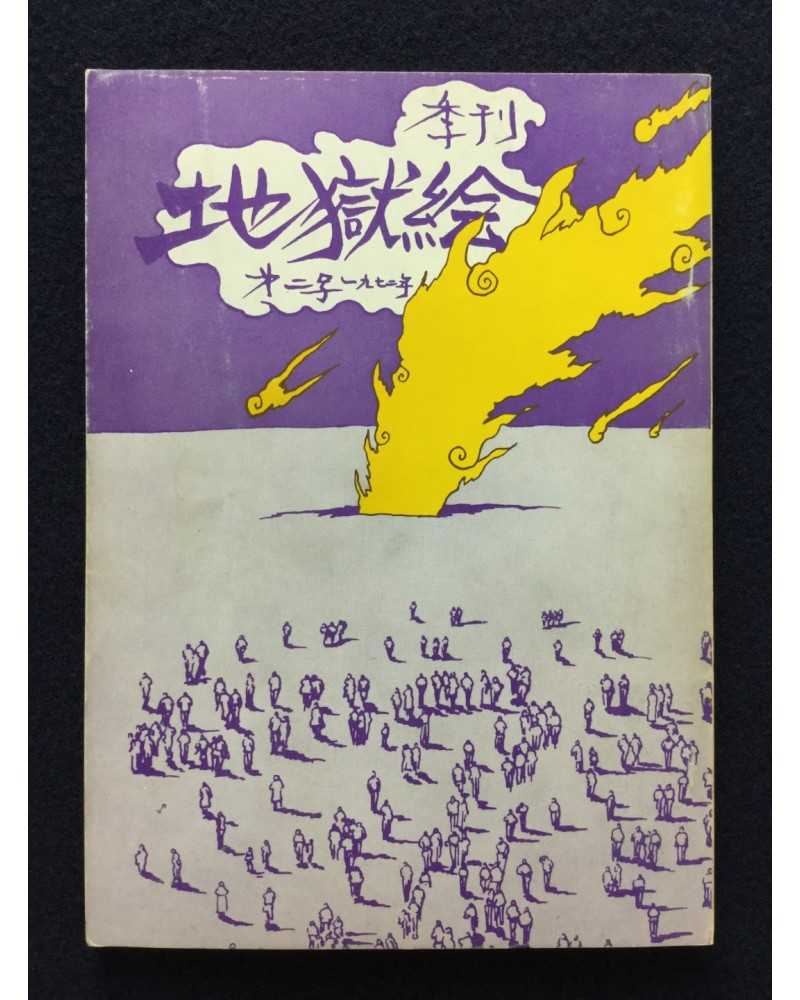 季刊
地獄絵
㐧二号一九七二年